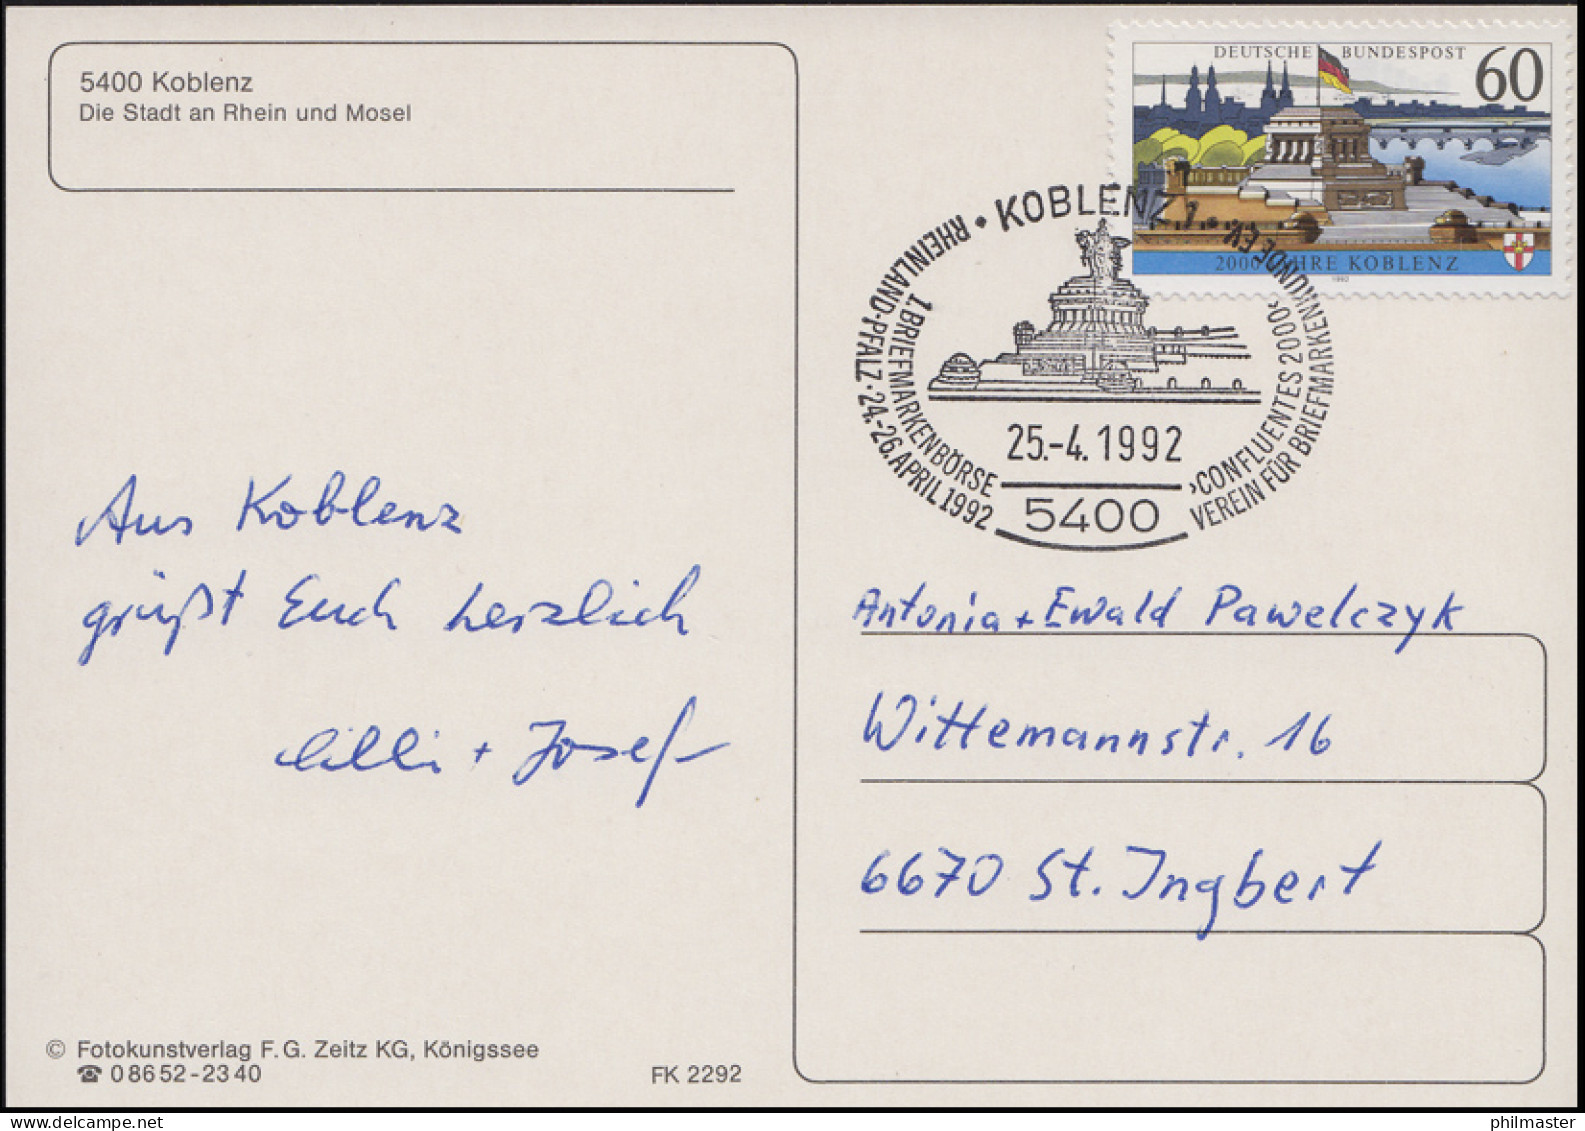 5400 Koblenz
Die Stadt an Rhein und Mosel
DEUTSCHE BUNDESPOST 60
2000 JAHRE KOBLENZ
1992
• KOBLENZ 1 •
RHEINLAND-PFALZ · 24.-26. APRIL 1992
1. BRIEFMARKENBÖRSE
›CONFLUENTES 2000‹
VEREIN FÜR BRIEFMARKENKUNDE E.V.
25.-4.1992
5400
Aus Koblenz
grüßt Euch herzlich
Cilli + Josef
Antonia + Ewald Pawelczyk
Wittemannstr. 16
6670 St. Ingbert
© Fotokunstverlag F. G. Zeitz KG, Königssee
☎ 0 86 52 - 23 40
FK 2292
philmaster